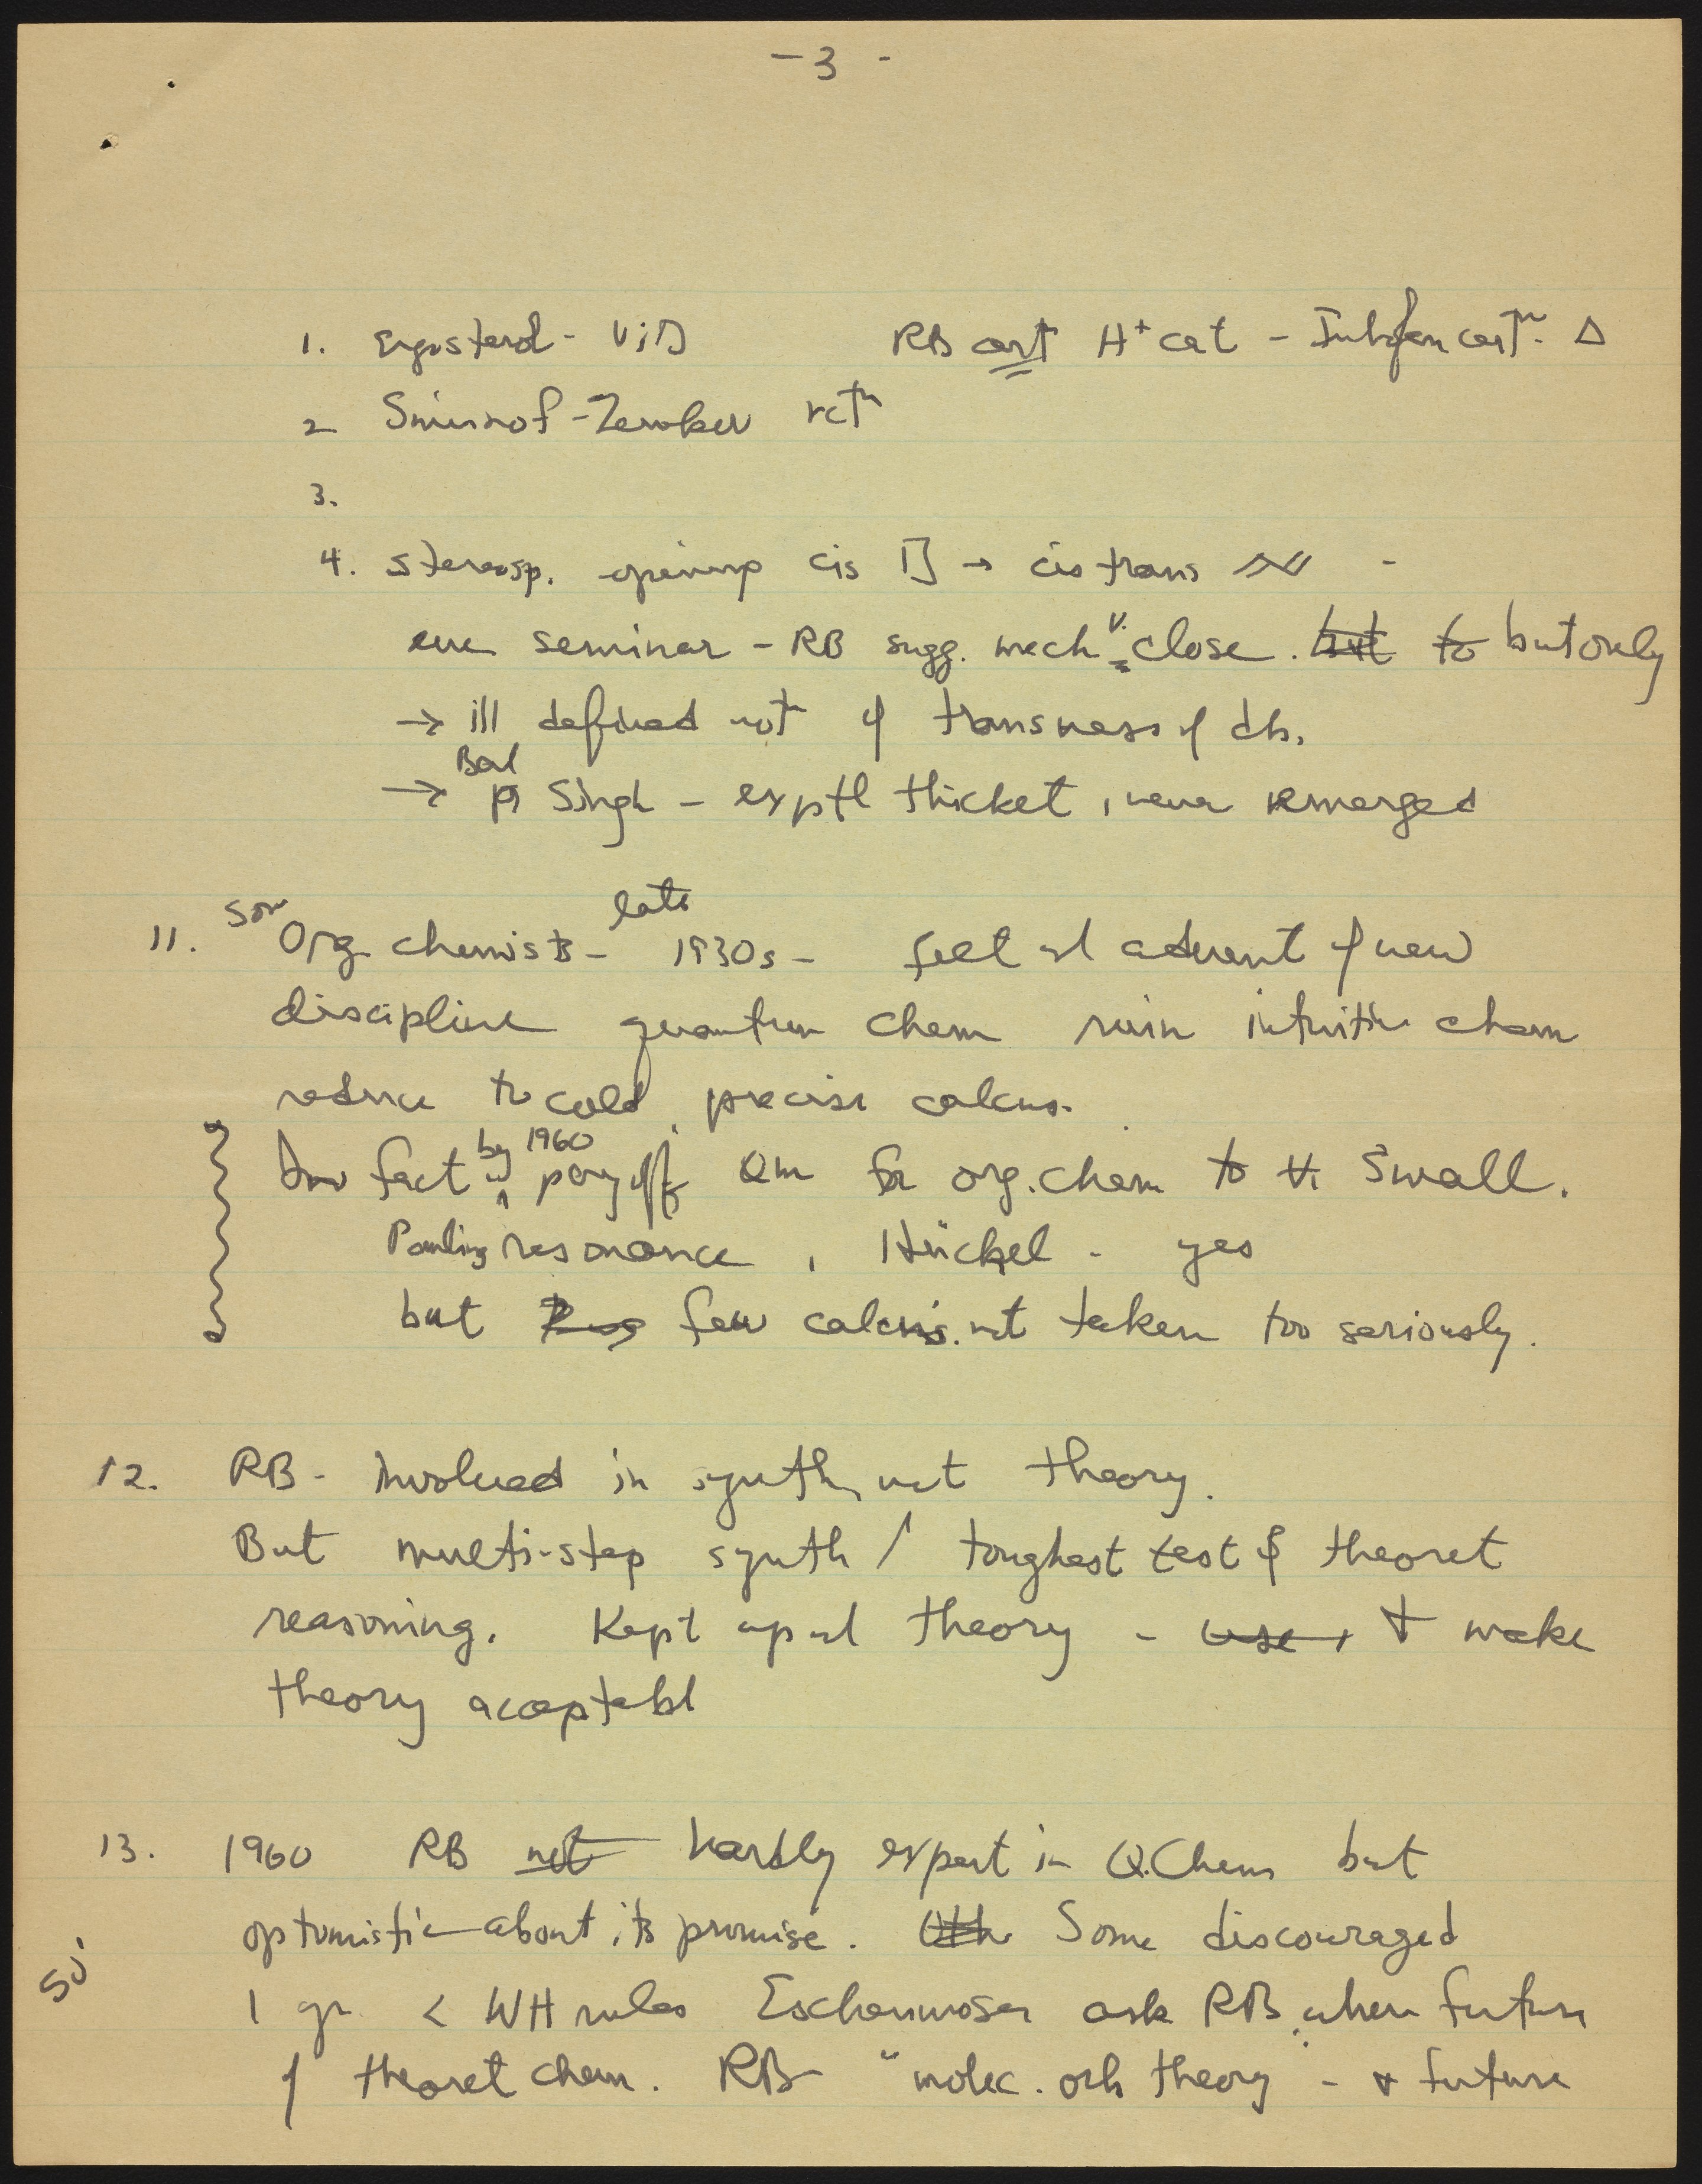 - 3 -
1. Ergosterol - Vit D RB H+ cat - Δ
2 Smirnof-Zamkov rctn
3.
4. stereosp. opening cis → cis trans -
eve seminar - RB sugg. mech v. close. but to but only
→ ill defined not of transness of db.
→ Singh - exptl thicket, never emerged
11. Some Org. chemists - late 1930s - felt advent of new
discipline quantum chem ruin intuitive chem
reduce to cold, precise calcns.
In fact by 1960 payoff Qm for org. chem to small.
Pauling resonance, Hückel - yes
but few calcns. not taken too seriously.
12. RB - involved in synth, not theory.
But multi-step synth / toughest test of theoret
reasoning. Kept up theory - use, + make
theory acceptabl
13. 1960 RB not hardly expert in Q.Chem but
optomistic about its promise. Oth Some discouraged
1 yr < WH rules Eschenmoser ask RB, where future
of theoret chem. RB - "molec. orb theory - + future